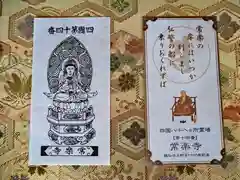 四國第十四番
常楽寺
常楽の
岸にはいつか
到らまし
弘誓の船に
乗りおくれずば
四国八十八ヶ所霊場
【第十四番】
常楽寺